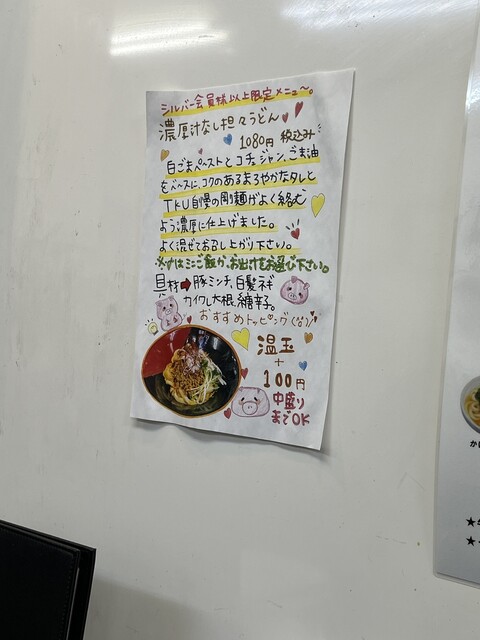 シルバー会員様以上限定メニュ〜。
濃厚汁なし担々うどん
1080円 税込み
白ごまペーストとコチュジャン、ごま油
をベースに、コクのあるまろやかなタレと
TKU自慢の剛麺がよく絡む
よう濃厚に仕上げました。
よく混ぜてお召し上がり下さい。
ミニご飯か、お出汁をお選び下さい。
具材➡豚ミンチ、白髪ネギ
カイワレ大根、糸唐辛子。
おすすめトッピング
温玉
+
100円
中盛り
までOK